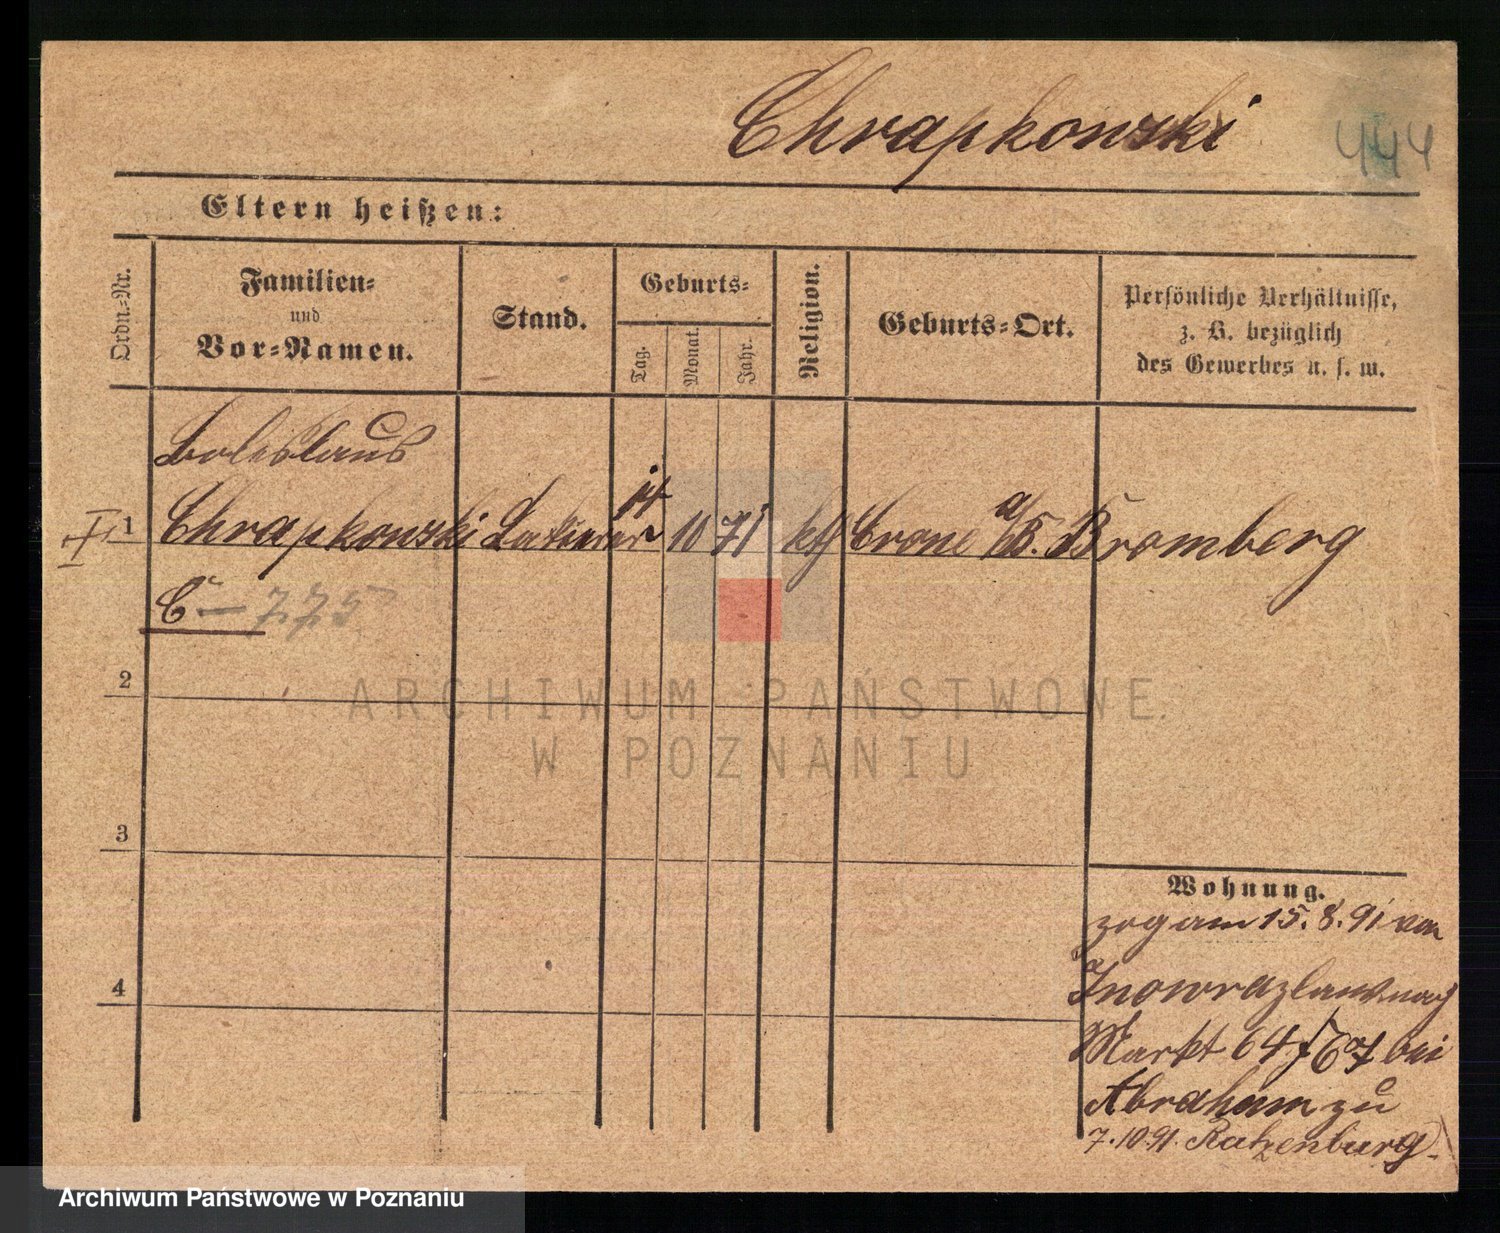 Chrapkowski
444
Eltern heißen:
Ordn.-Nr.
Familien-
und
Vor-Namen.
Stand.
Geburts-
Tag.
Monat.
Jahr.
Religion.
Geburts-Ort.
Persönliche Verhältnisse,
z. B. bezüglich
des Gewerbes u. s. w.
Boleslaus
1 Chrapkowski 10 71 kth Crone a/B. Bromberg
C - 775
2
ARCHIWUM PAŃSTWOWE
W POZNANIU
3
Wohnung.
zog am 15. 8. 91 von
4
Inowrazlaw nach
Markt 64 bei
Abraham zu
7.10.91. Ratzenburg.
Archiwum Państwowe w Poznaniu